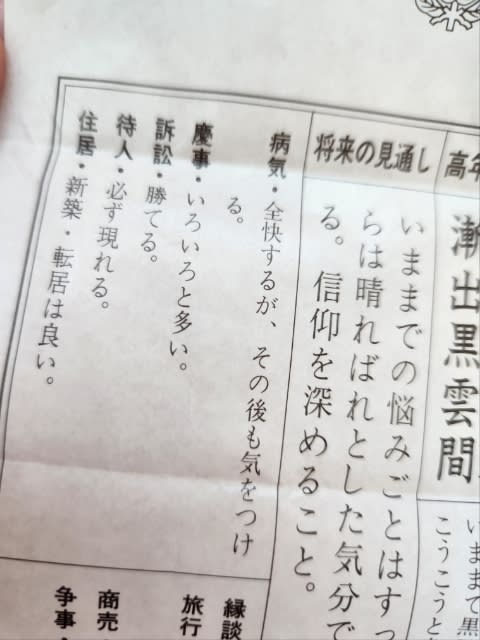 高年
漸出黒雲間
いままで黒
こうこうと
将来の見通し
いままでの悩みごとはすっ
らは晴ればれとした気分で
る。信仰を深めること。
病気・全快するが、その後も気をつけ
る。
慶事・いろいろと多い。
訴訟・勝てる。
待人・必ず現れる。
住居・新築・転居は良い。
縁談
旅行
商売・
争事・